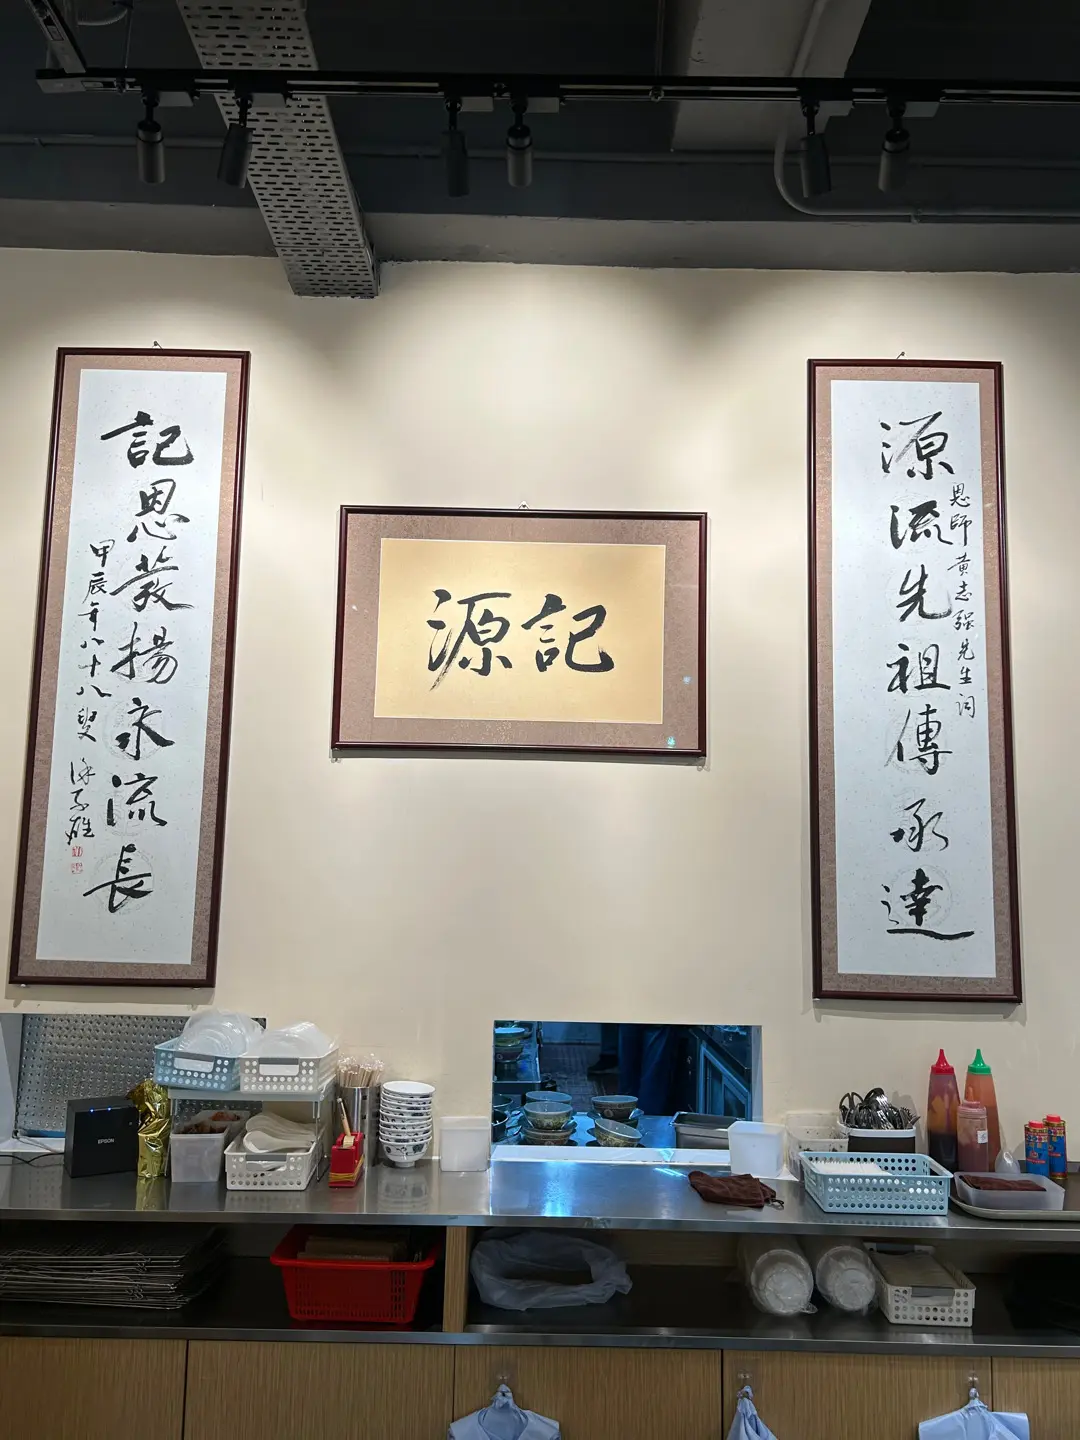 源流先祖傳承達
恩師黄志強先生词
源記
記恩發揚永流長
甲辰年八十八叟
EPSON